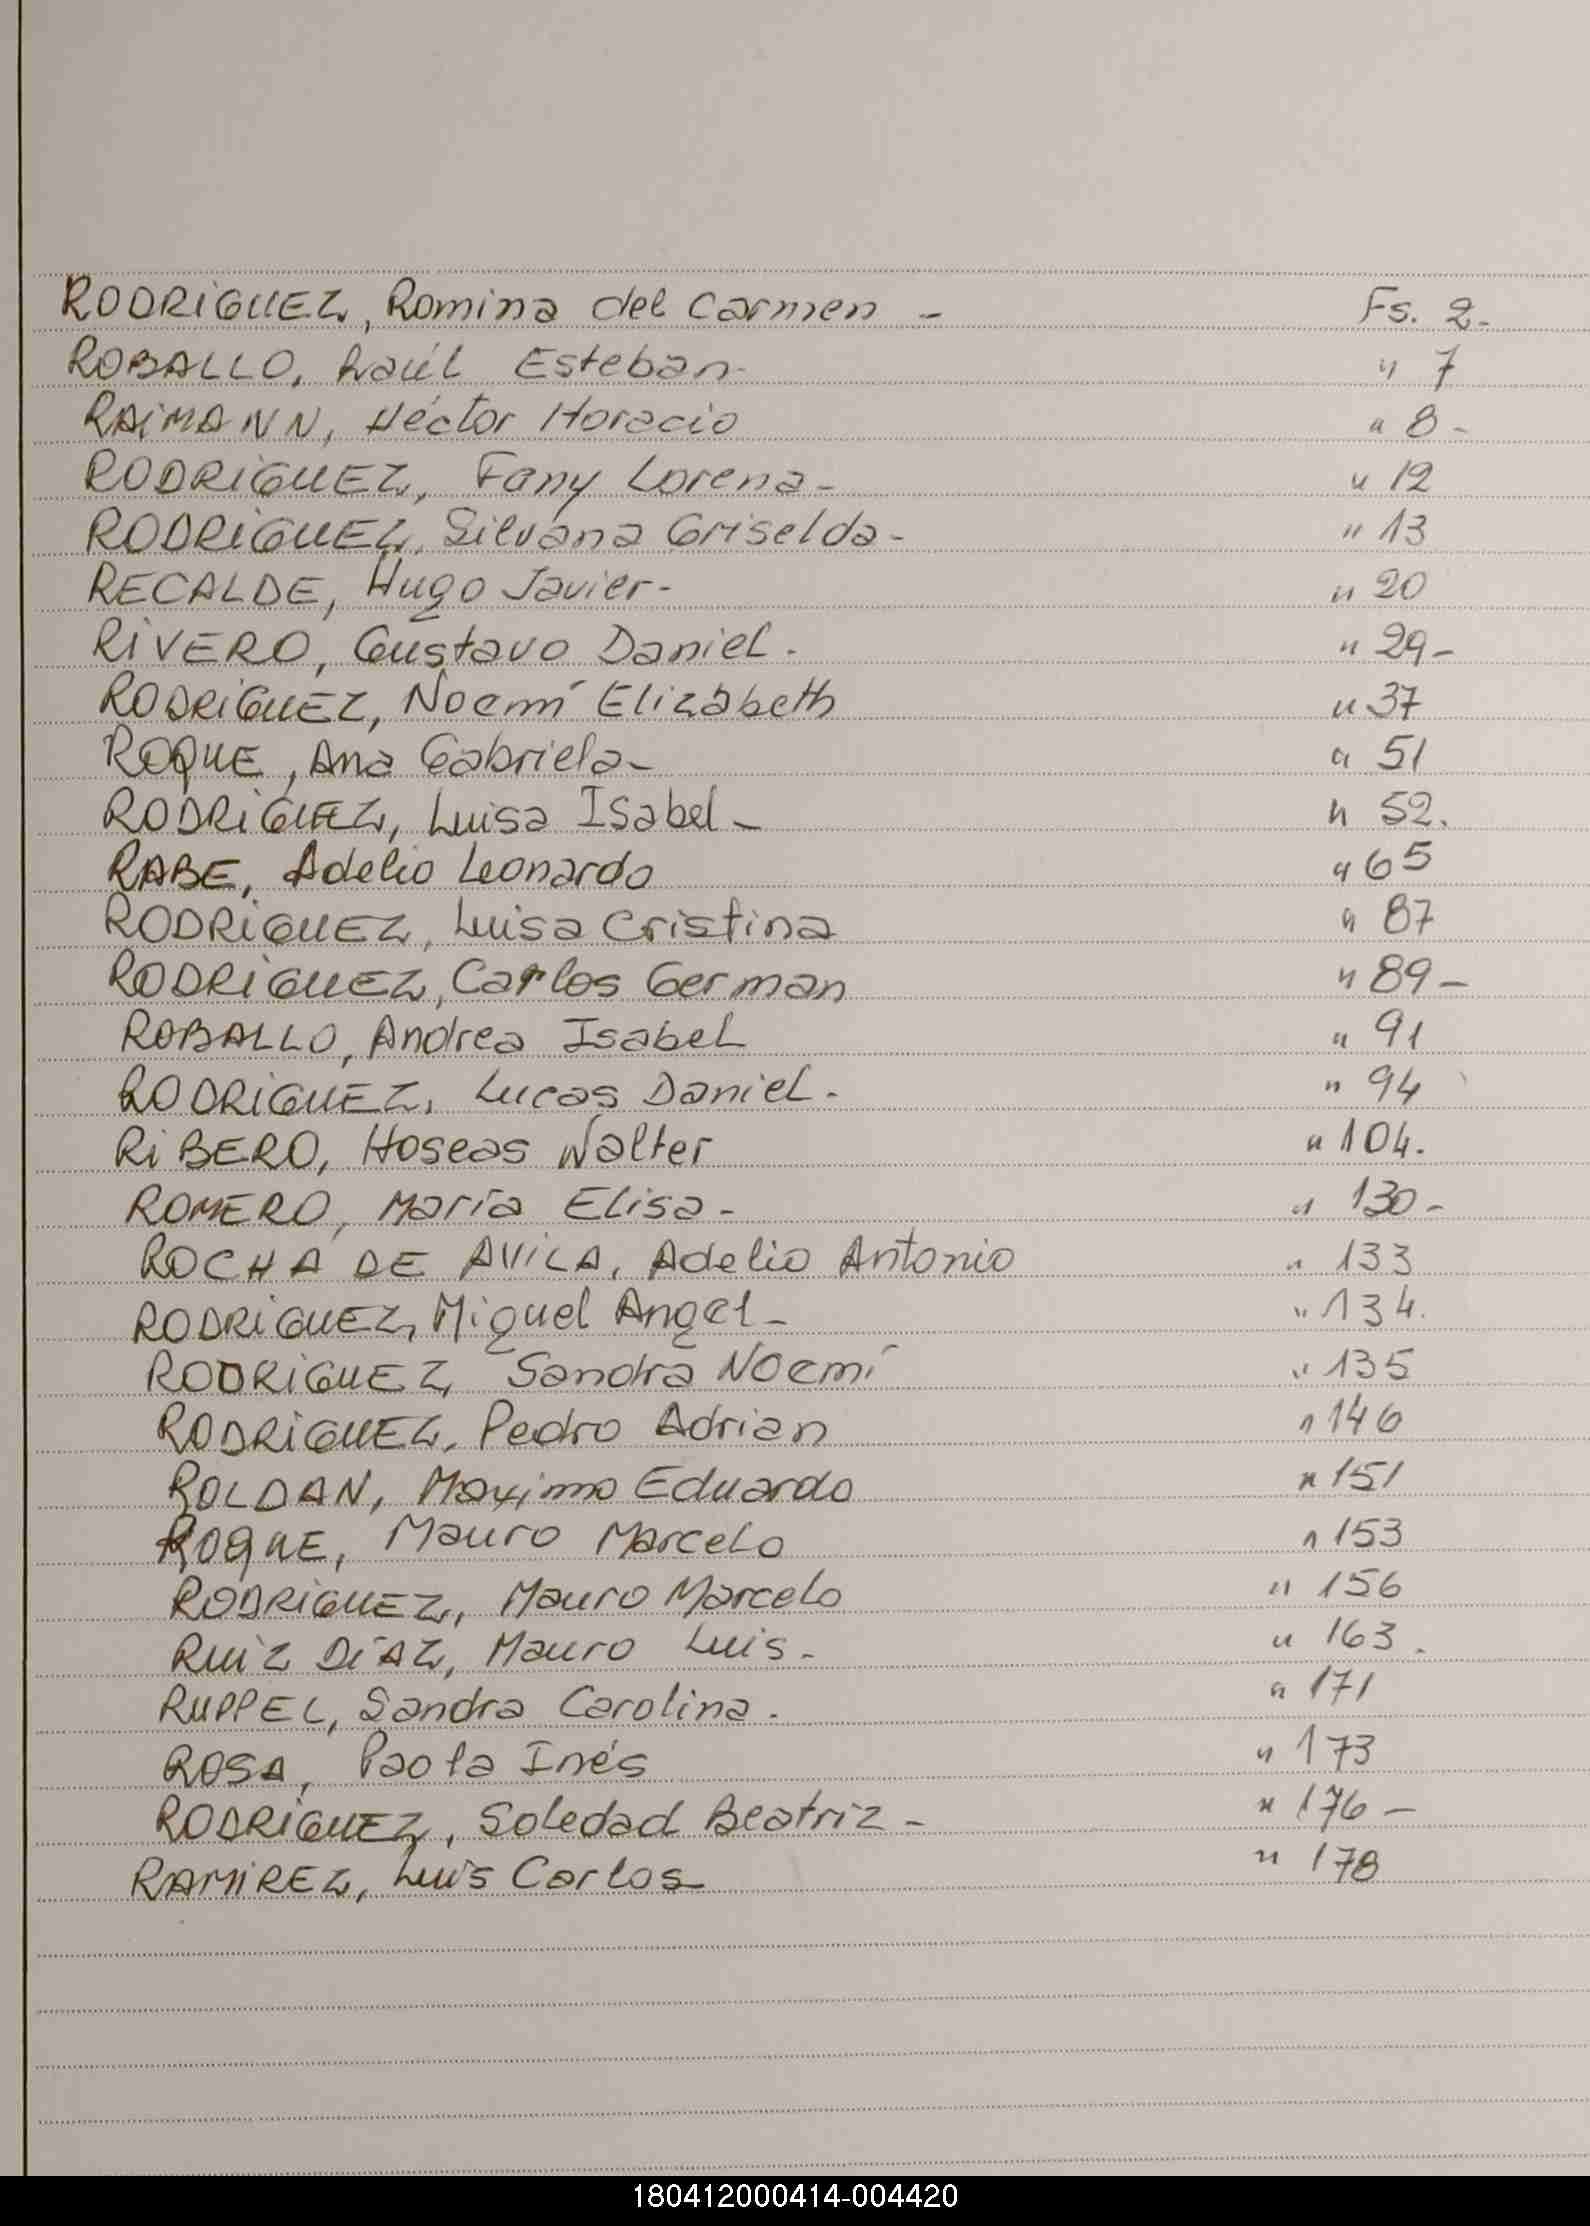 RODRIGUEZ, Romina del Carmen - Fs. 2.-
ROBALLO, Raúl Esteban- " 7
RAIMANN, Héctor Horacio " 8-
RODRIGUEZ, Fany Lorena- " 12
RODRIGUEZ, Silvana Griselda- " 13
RECALDE, Hugo Javier- " 20
RIVERO, Gustavo Daniel. " 29-
RODRIGUEZ, Noemí Elizabeth " 37
ROQUE, Ana Gabriela- " 51
RODRIGUEZ, Luisa Isabel- " 52.
RABE, Adelio Leonardo " 65
RODRIGUEZ, Luisa Cristina " 87
RODRIGUEZ, Carlos German " 89-
ROBALLO, Andrea Isabel " 91
RODRIGUEZ, Lucas Daniel. " 94
RIBERO, Hoseas Walter " 104.
ROMERO, María Elisa- " 130-
ROCHA DE AVILA, Adelio Antonio " 133
RODRIGUEZ, Miguel Angel- " 134.
RODRIGUEZ, Sandra Noemí " 135
RODRIGUEZ, Pedro Adrian " 146
ROLDAN, Maximo Eduardo " 151
ROQUE, Mauro Marcelo " 153
RODRIGUEZ, Mauro Marcelo " 156
RUIZ DÍAZ, Mauro Luis- " 163.
RUPPEL, Sandra Carolina. " 171
ROSA, Paola Inés " 173
RODRIGUEZ, Soledad Beatriz- " 176-
RAMIREZ, Luis Carlos- " 178
180412000414-004420